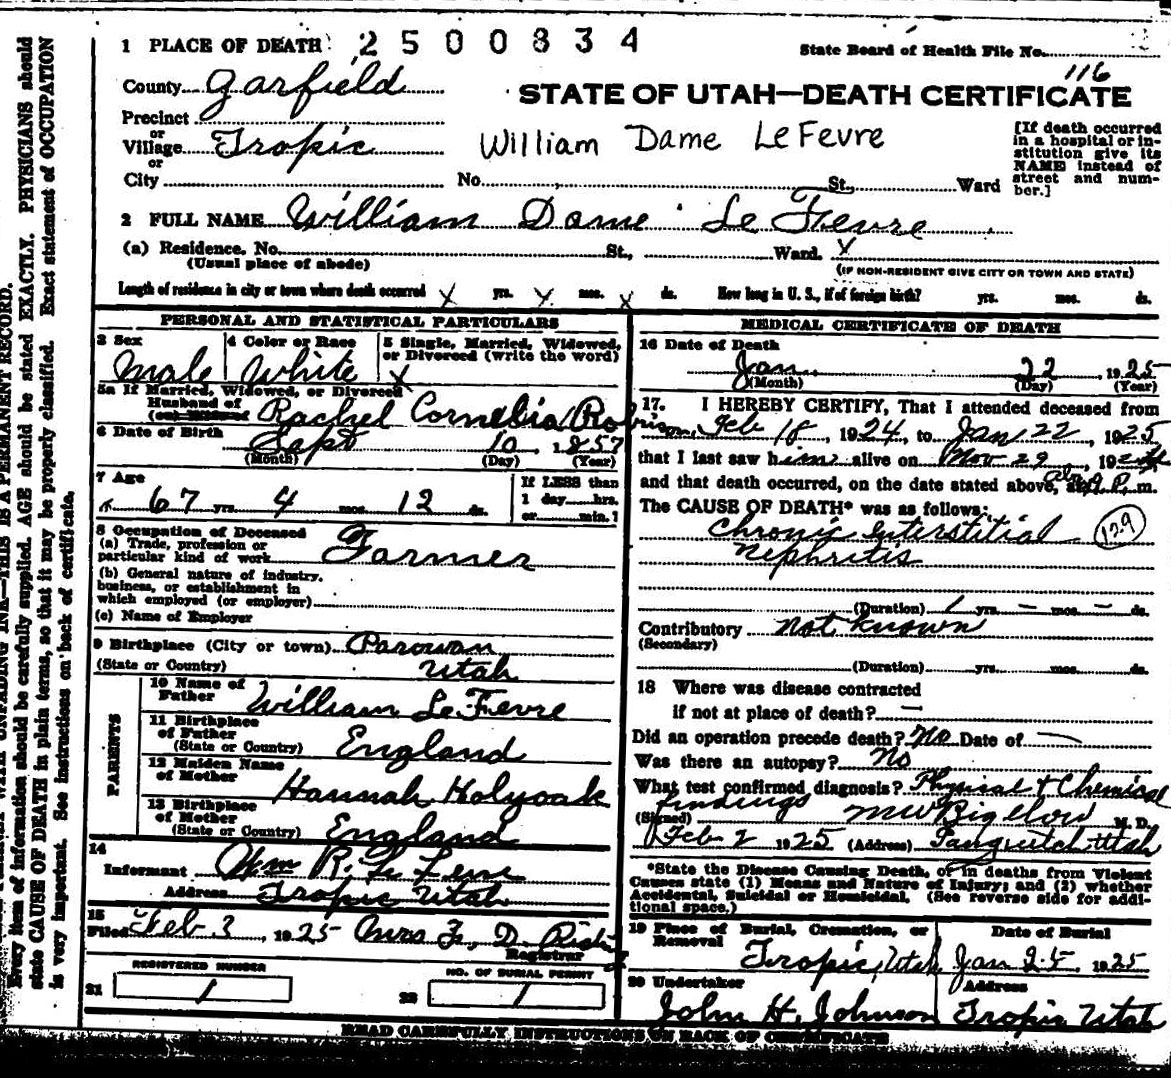 1 PLACE OF DEATH: 2500834
State Board of Health File No.
116
County Garfield
STATE OF UTAH—DEATH CERTIFICATE
Precinct
or
Village Tropic
or
City No. St. Ward
William Dame LeFevre
[If death occurred
in a hospital or in-
stitution give its
NAME instead of
street and num-
ber.]
2 FULL NAME William Dame Le Fevre
(a) Residence. No. St., Ward. X
(Usual place of abode)
(IF NON-RESIDENT GIVE CITY OR TOWN AND STATE)
Length of residence in city or town where death occurred X yrs. X mos. X ds. How long in U. S., if of foreign birth? yrs. mos. ds.
PERSONAL AND STATISTICAL PARTICULARS
3 Sex
Male
4 Color or Race
White
5 Single, Married, Widowed,
or Divorced (write the word)
X
5a If Married, Widowed, or Divorced
Husband of
(or) Wife of Rachel Cornelia Robinson
6 Date of Birth Sept 10, 1857
(Month) (Day) (Year)
7 Age
67 yrs. 4 mos. 12 ds.
If LESS than
1 day hrs.
or min.?
8 Occupation of Deceased
(a) Trade, profession or
particular kind of work Farmer
(b) General nature of industry,
business, or establishment in
which employed (or employer)
(c) Name of Employer
9 Birthplace (City or town) Parowan
(State or Country) Utah
PARENTS
10 Name of
Father William LeFevre
11 Birthplace
of Father
(State or Country) England
12 Maiden Name
of Mother Hannah Holyoak
13 Birthplace
of Mother
(State or Country) England
14
Informant Wm R. Le Fevre
Address Tropic Utah
15
Filed Feb. 3, 1925
Registrar
REGISTERED NUMBER
21 1
NO. OF BURIAL PERMIT
22 1
MEDICAL CERTIFICATE OF DEATH
16 Date of Death
Jan. 22, 1925
(Month) (Day) (Year)
17. I HEREBY CERTIFY, That I attended deceased from
Feb 18, 1924, to Jan 22, 1925,
that I last saw him alive on Nov 29, 1924
and that death occurred, on the date stated above, at m.
The CAUSE OF DEATH* was as follows:
Chronic Interstitial 129
Nephritis
(Duration) 1 yrs. — mos. — ds.
Contributory not known
(Secondary)
(Duration) yrs. mos. ds.
18 Where was disease contracted
if not at place of death? —
Did an operation precede death? No Date of —
Was there an autopsy? No
What test confirmed diagnosis? Physical & Chemical
findings
(Signed) M W Bigelow M. D.
Feb 2 1925 (Address) Panguitch Utah
*State the Disease Causing Death, or in deaths from Violent
Causes state (1) Means and Nature of Injury; and (2) whether
Accidental, Suicidal or Homicidal. (See reverse side for addi-
tional space.)
19 Place of Burial, Cremation, or
Removal
Tropic, Utah
Date of Burial
Jan 25, 1925
20 Undertaker
John H. Johnson
Address
Tropic Utah
READ CAREFULLY INSTRUCTIONS ON BACK OF CERTIFICATE
WITH UNFADING INK—THIS IS A PERMANENT RECORD.
Every item of information should be carefully supplied. AGE should be stated EXACTLY. PHYSICIANS should
state CAUSE OF DEATH in plain terms, so that it may be properly classified. Exact statement of OCCUPATION
is very important. See instructions on back of certificate.